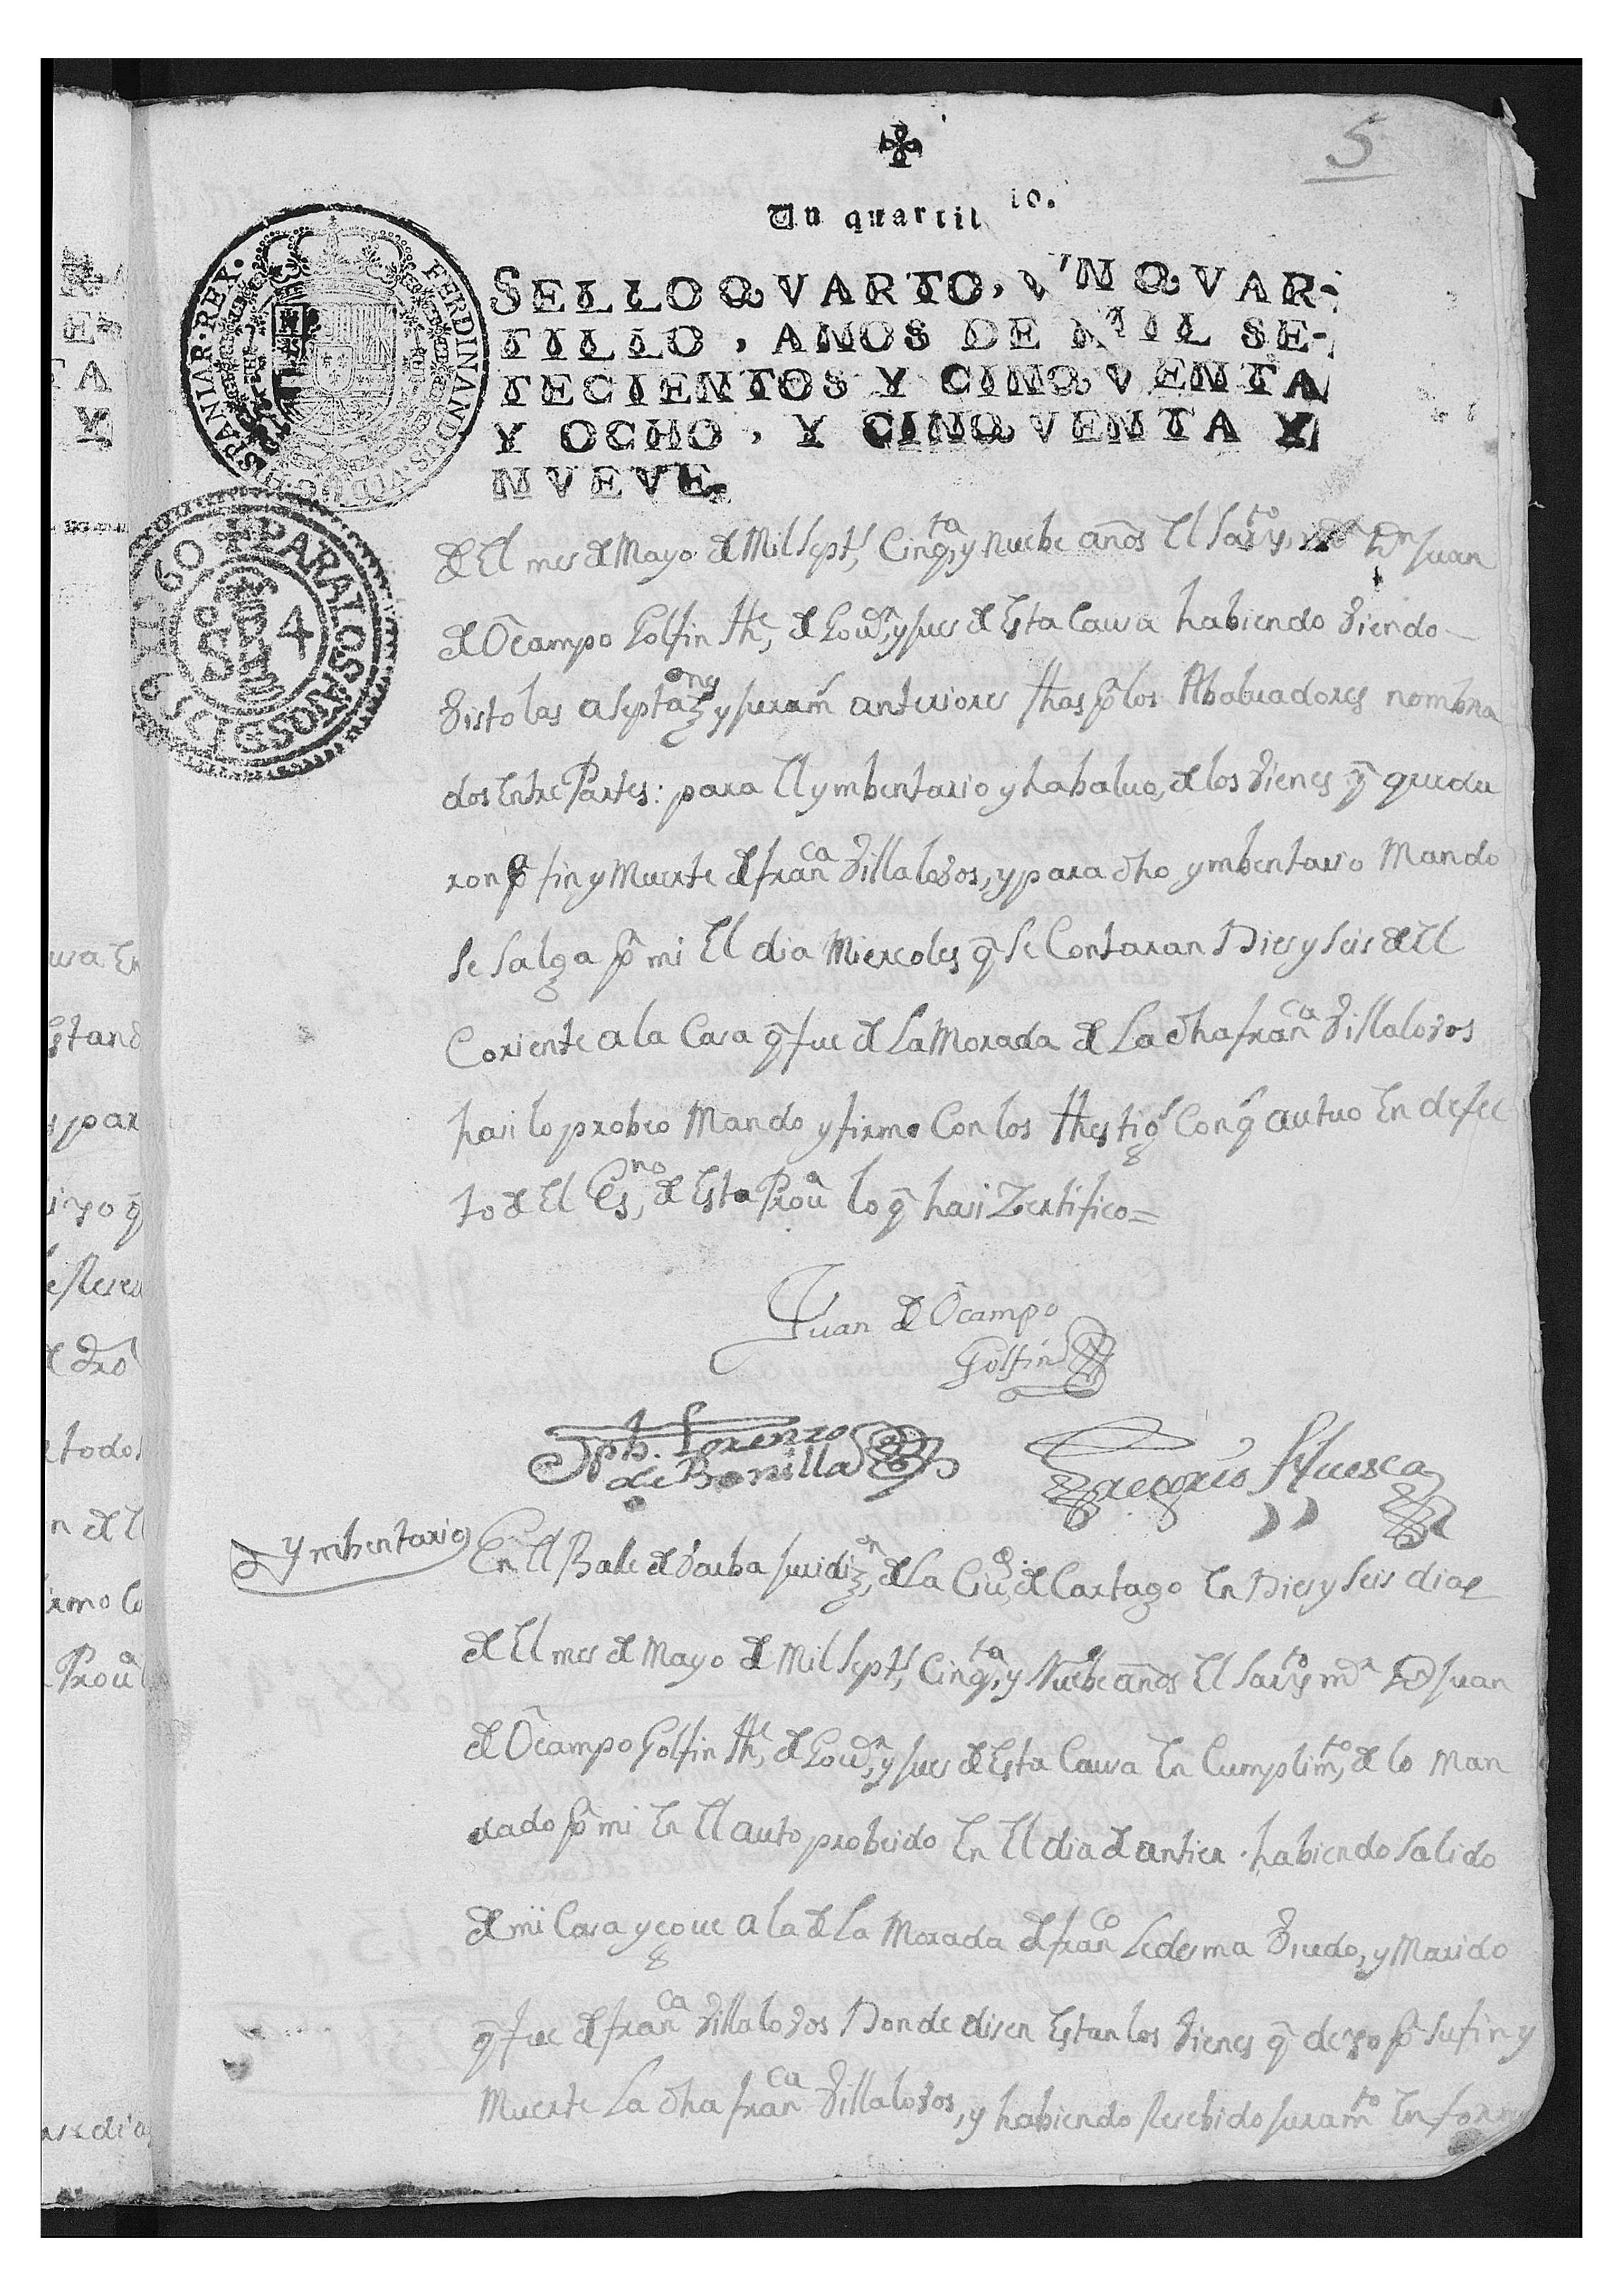 5
Un quartillo.
SELLO QVARTO, VN QVAR-
TILLO, AÑOS DE MIL SE-
TECIENTOS Y CINQVENTA
Y OCHO, Y CINQVENTA Y
NVEVE.
FERDINANDUS VI D G HISPANIAR REX
PARA LOS AÑOS D 60
de El mes de Mayo de Mil Septs, Cinqta, y nuebe años El Sarxto Dn Juan
de Ocampo Golfin the, de Govr, y jues de Esta Causa habiendo Viendo
Visto las aseptaz.ones y juramtos anteriores fhas pr los Abaluadores nombra
dos Entre Partes: para El ymbentario y habaluo, de los Vienes q̃ queda
ron pr fin y Muerte de franca Villalovos, y para dho ymbentario Mando
se salga pr mi El dia Miercoles q̃ se Contaran Dies y seis de El
Coriente a la Casa q̃ fue de La Morada de La dha franca Villalovos
hasi lo probeo Mando y firmo Con los thestigs Con q̃s autuo En defec
to de El Esno, de Esta Proua lo q̃ hasi Zertifico=
Juan de Ocampo
Golfin
Jph. Lorenzo
de Bonilla
Gregorio Huesca
ymbentario
En El Balle de Barba juridizon, de La Ciud, de Cartago En Dies y seis dias
de El mes de Mayo de Mil Septs, Cinqta, y Nuebe años El Sarxto mr Dn Juan
de Ocampo Golfin the, de Govr, y jues de Esta Causa En Cumplimto, de lo Man
dado pr mi En El auto probeido En El dia de antier habiendo Salido
de mi Casa y ... a la de La Morada de franco Ledesma Viudo, y Marido
q̃ fue de franca Villalovos Donde disen Estan los Vienes q̃ dexo pr su fin y
Muerte La dha franca Villalovos, y habiendo Resebido juramto En forma